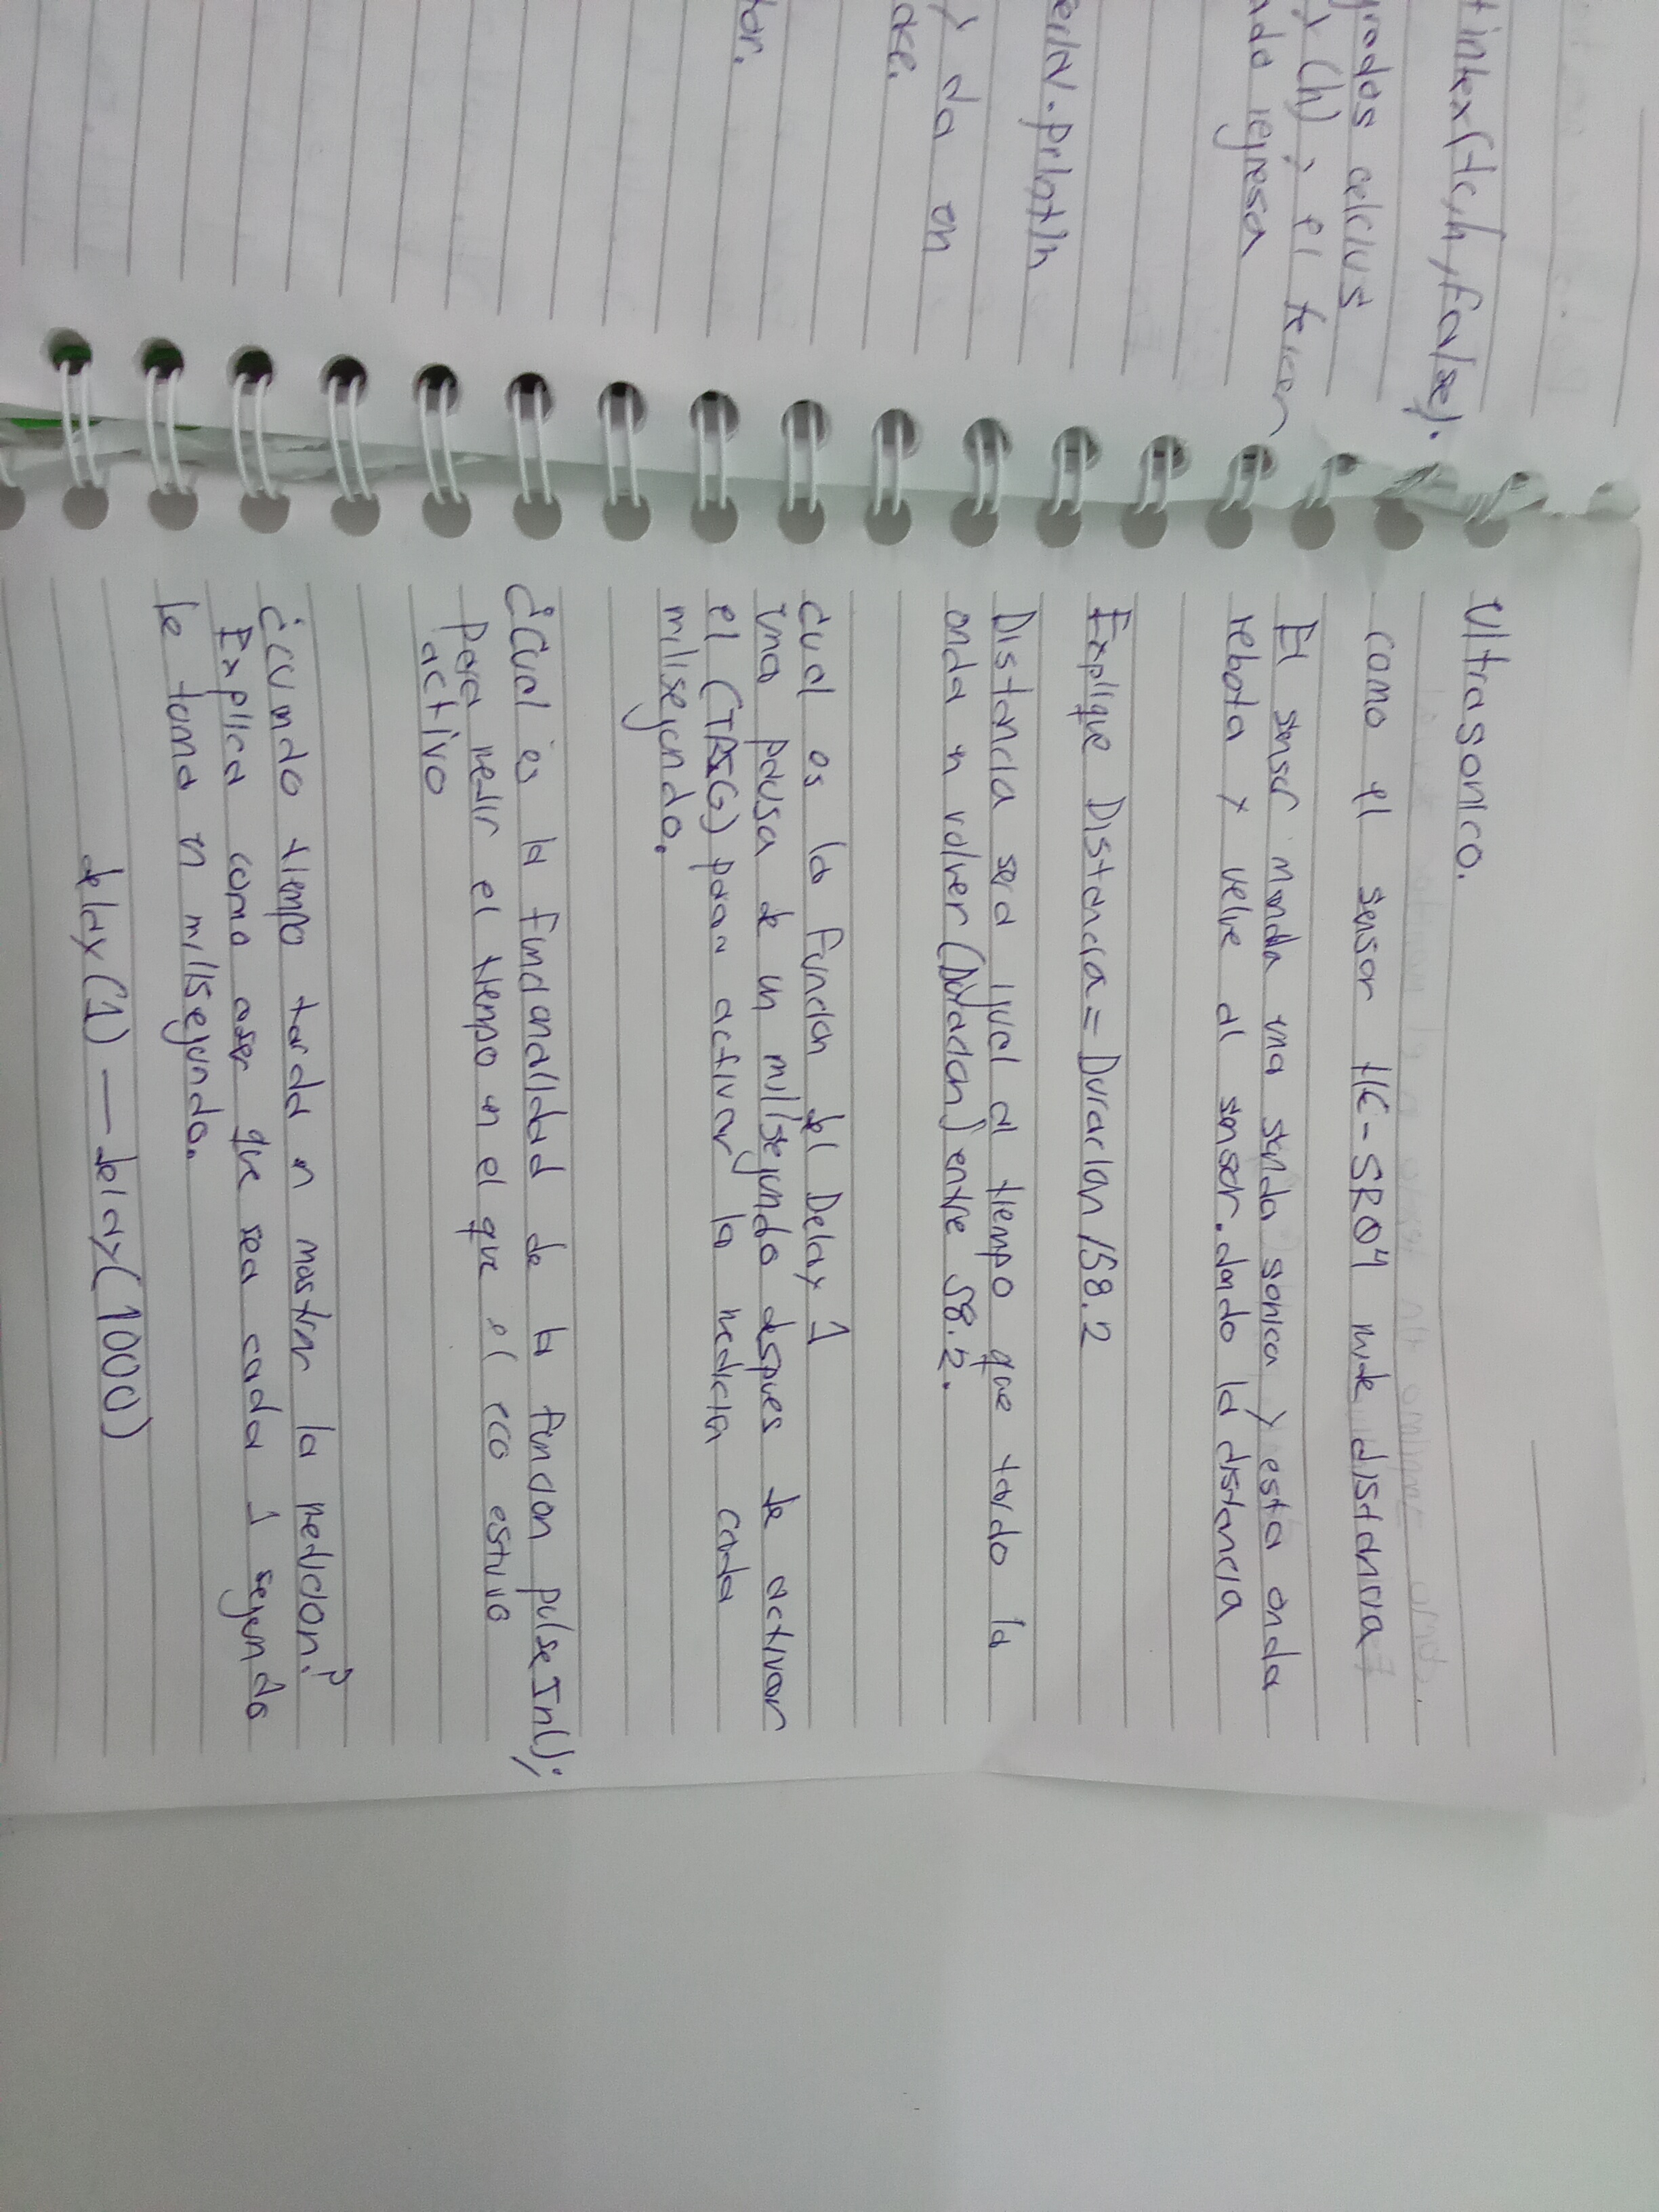 tindex(tc,h,false).
grados celcius
y (h), el tercer
ado regresa
erial.println
y da en
ase.
tor.
Ultrasonico.
como el sensor HC-SR04 mide distancia
El sensor manda una senda sonica y esta onda
rebota y velve al sensor. dando la distancia
Explique Distancia = Duracion/58.2
Distancia sera igual al tiempo que tardo la
onda en volver (Duracion) entre 58.2.
Cual es la funcion del Delay 1
una pausa de un milisegundo despues de activar
el (TRIG) para activar la medicion cada
milisegundo.
¿Cual es la funcionalidad de la funcion pulseIn();
para medir el tiempo en el que el eco estuvo
activo
¿Cuando tiempo tarda en mostrar la medicion?
Explica como aser que sea cada 1 segundo
le toma un milisegundo.
delay(1) — delay(1000)